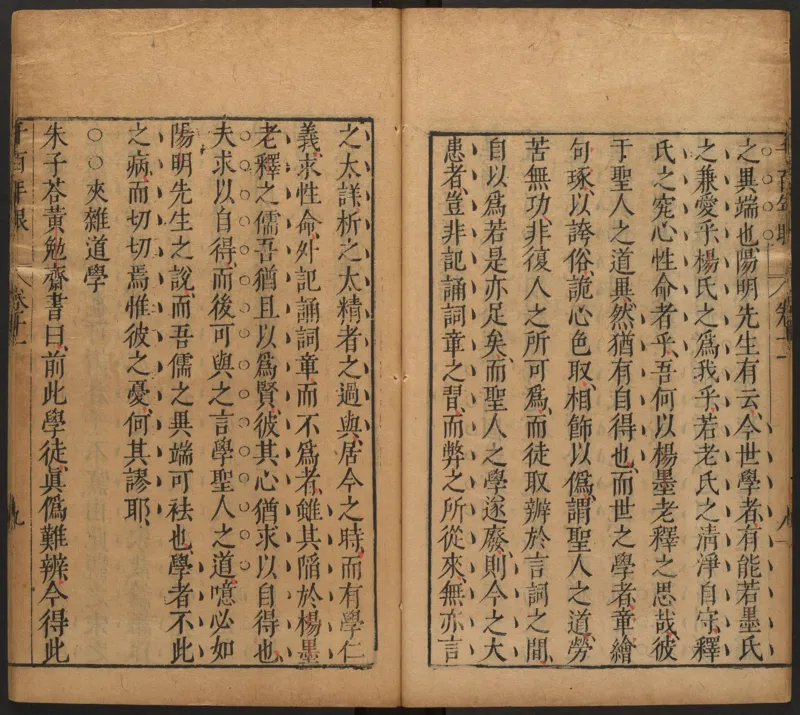 之異端也陽明先生有云今世學者有能若墨氏
之兼愛乎楊氏之爲我乎若老氏之清淨自守釋
氏之究心性命者乎吾何以楊墨老釋之思哉彼
于聖人之道異然猶有自得也而世之學者章繪
句琢以誇俗詭心色取相飾以僞謂聖人之道勞
苦無功非復人之所可爲而徒取辨於言詞之間
自以爲若是亦足矣而聖人之學遂廢則今之大
患者豈非記誦詞章之習而弊之所從來無亦言
之太詳析之太精者之過與居今之時而有學仁
義求性命外記誦詞章而不爲者雖其陷於楊墨
老釋之儒吾猶且以爲賢彼其心猶求以自得也
夫求以自得而後可與之言學聖人之道噫必如
陽明先生之說而吾儒之異端可袪也學者不此
之病而切切焉惟彼之憂何其謬耶
○○夾雜道學
朱子荅黃勉齋書曰前此學徒眞僞難辨今得此
千百年眼 卷十一 九